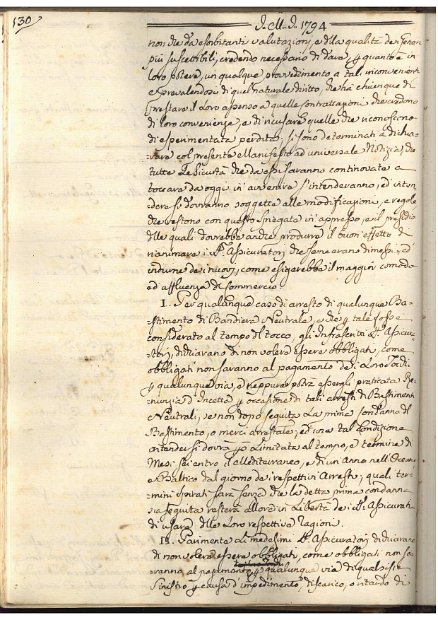 130
J. M. J. 1794
non che da esorbitanti valutazioni, e dalla qualità de Generi
più suscettibili, credendo necessario di dare, p quanto è in
loro potere, un qualche provedimento a tali inconvenienti
e prevalendosi di quel naturale diritto, che hà chiunque di
prestare il loro assenso a quelle contrattazioni che credono
di loro convenienza, e di ricusare quelle che riconoscono
di esperimentata perdita; si sono determinati a dichia
rare col presente Manifesto ad universale Notizia, che
tutte le Sicurtà che da essi saranno continovate a
toccare da oggi in avvenire s'intenderanno, ed inten
dere si dovranno soggette alle modificazioni, e regole
che restono con questo spiegate in appresso, e sul
delle quali dovrebbe anche produrre il buon effetto di
rianimare i SS.ri Assicuratori che sene erano dimessi, ed
indurne de nuovi, come esigerebbe il maggior comodo
ed affluenza di Commercio.
I. Per qualunque caso di arresto di qualunque Ba=
stimento di Bandiera Neutrale, e che p tale fosse
considerato al tempo del tocco, gli Infrascritti SS.ri Assicu
ratori, dichiarano di non volere essere obbligati, come
obbligati non saranno al pagamento de
p qualunque via, e neppure potrà essergli praticata Re
nunzia d'Incetta p occasione di tali arresti di Bastimenti
Neutrali, se non dopo seguita la prima condanna di
Bastimento, o merci arrestate, ed una tal condizione
intender si dovrà p o limitata al tempo, e termine di
Mesi sei entro il Mediterraneo, e di un Anno nell'Oceano
e Baltico dal giorno de rispettivi Arresti; quali ter
mini spirati sara senza che la detta prima condanna
sia seguita resterà allora in Libertà de SS.ri Assicurati
di usare delle loro respettive Ragioni.
II. Parimente i medesimi SS.ri Assicuratori dichiarano
di non volere essere obbligati, come obbligati non sa
ranno al pagamento, p qualunque via di qualsisia
Sinistro p causa d'impedimento, discarico, o ritardo di